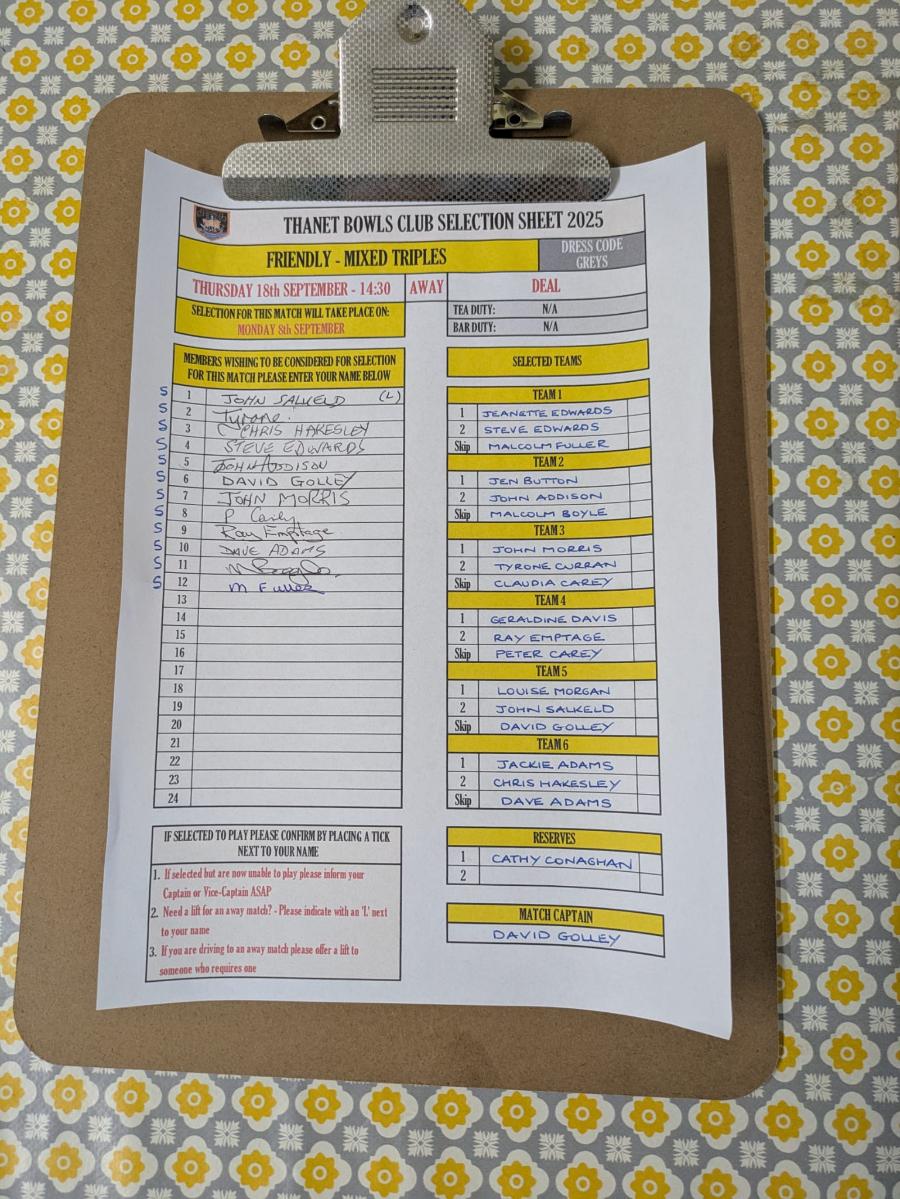 THANET BOWLS CLUB SELECTION SHEET 2025
FRIENDLY - MIXED TRIPLES
DRESS CODE
GREYS
THURSDAY 18th SEPTEMBER - 14:30
AWAY
DEAL
SELECTION FOR THIS MATCH WILL TAKE PLACE ON:
MONDAY 8th SEPTEMBER
TEA DUTY: N/A
BAR DUTY: N/A
MEMBERS WISHING TO BE CONSIDERED FOR SELECTION
FOR THIS MATCH PLEASE ENTER YOUR NAME BELOW
S 1 JOHN SALKELD (L)
S 2 Tyrone.
S 3 CHRIS HAKESLEY
S 4 STEVE EDWARDS
S 5 JOHN ADDISON
S 6 DAVID GOLLEY
S 7 JOHN MORRIS
S 8 P Carey
S 9 Ray Emptage
S 10 DAVE ADAMS
S 11
S 12 M Fuller
13
14
15
16
17
18
19
20
21
22
23
24
IF SELECTED TO PLAY PLEASE CONFIRM BY PLACING A TICK
NEXT TO YOUR NAME
1. If selected but are now unable to play please inform your
Captain or Vice-Captain ASAP
2. Need a lift for an away match? - Please indicate with an 'L' next
to your name
3. If you are driving to an away match please offer a lift to
someone who requires one
SELECTED TEAMS
TEAM 1
1 JEANETTE EDWARDS
2 STEVE EDWARDS
Skip MALCOLM FULLER
TEAM 2
1 JEN BUTTON
2 JOHN ADDISON
Skip MALCOLM BOYLE
TEAM 3
1 JOHN MORRIS
2 TYRONE CURRAN
Skip CLAUDIA CAREY
TEAM 4
1 GERALDINE DAVIS
2 RAY EMPTAGE
Skip PETER CAREY
TEAM 5
1 LOUISE MORGAN
2 JOHN SALKELD
Skip DAVID GOLLEY
TEAM 6
1 JACKIE ADAMS
2 CHRIS HAKESLEY
Skip DAVE ADAMS
RESERVES
1 CATHY CONAGHAN
2
MATCH CAPTAIN
DAVID GOLLEY